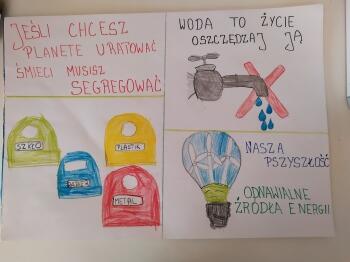 JEŚLI CHCESZ
PLANETE URATOWAĆ
ŚMIECI MUSISZ
SEGREGOWAĆ
WODA TO ŻYCIE
OSZCZĘDZAJ JĄ
SZKŁO
PLASTIK
METAL
NASZA
PSZYSZŁOŚĆ
ODNAWIALNE
ŹRÓDŁA ENERGII